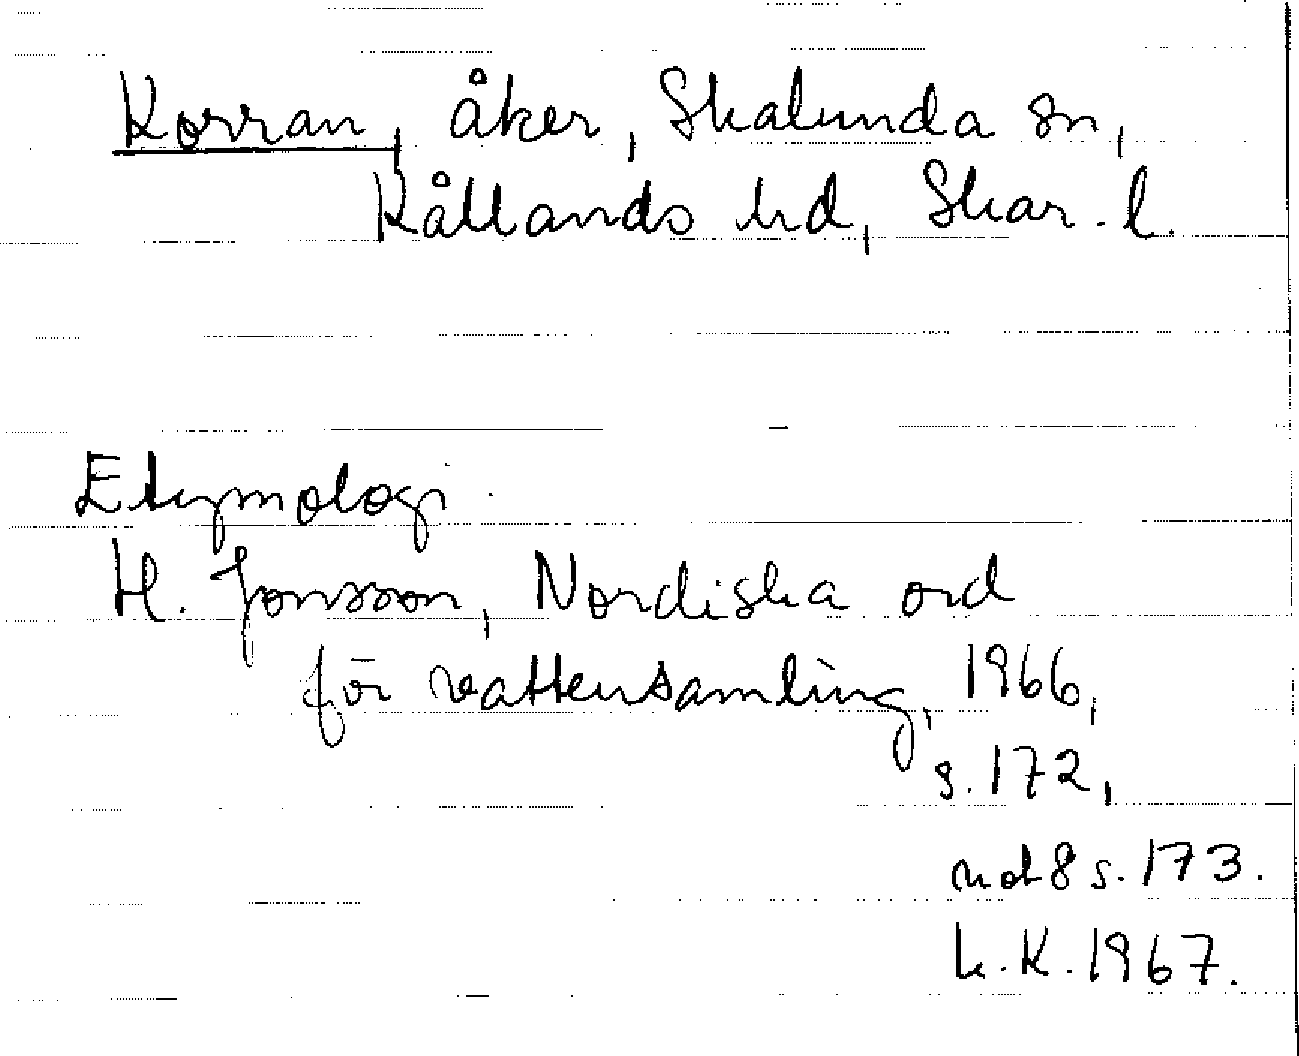 Korran, åker, Skalunda sn,
Kållands hd, Skar. l.
Etymologi.
H. Jonsson, Nordiska ord
för vattensamling, 1966,
s. 172,
not 8 s. 173.
L. K. 1967.